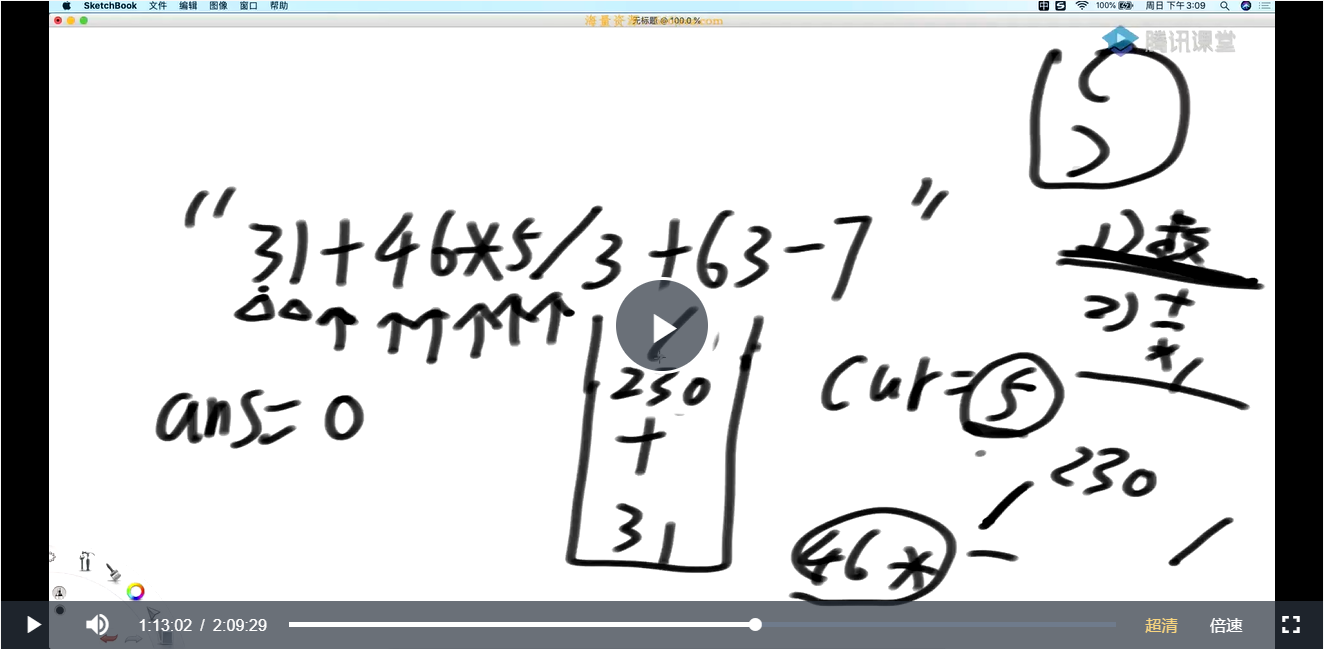 SketchBook 文件 编辑 图像 窗口 帮助 100% 周日下午3:09
无标题 @ 100.0 %
腾讯课堂
( )
"31+46*5/3+63-7"
1)
2) + - * /
ans=0
/
250
+
31
cur=5
230
46*
/
1:13:02 / 2:09:29 超清 倍速